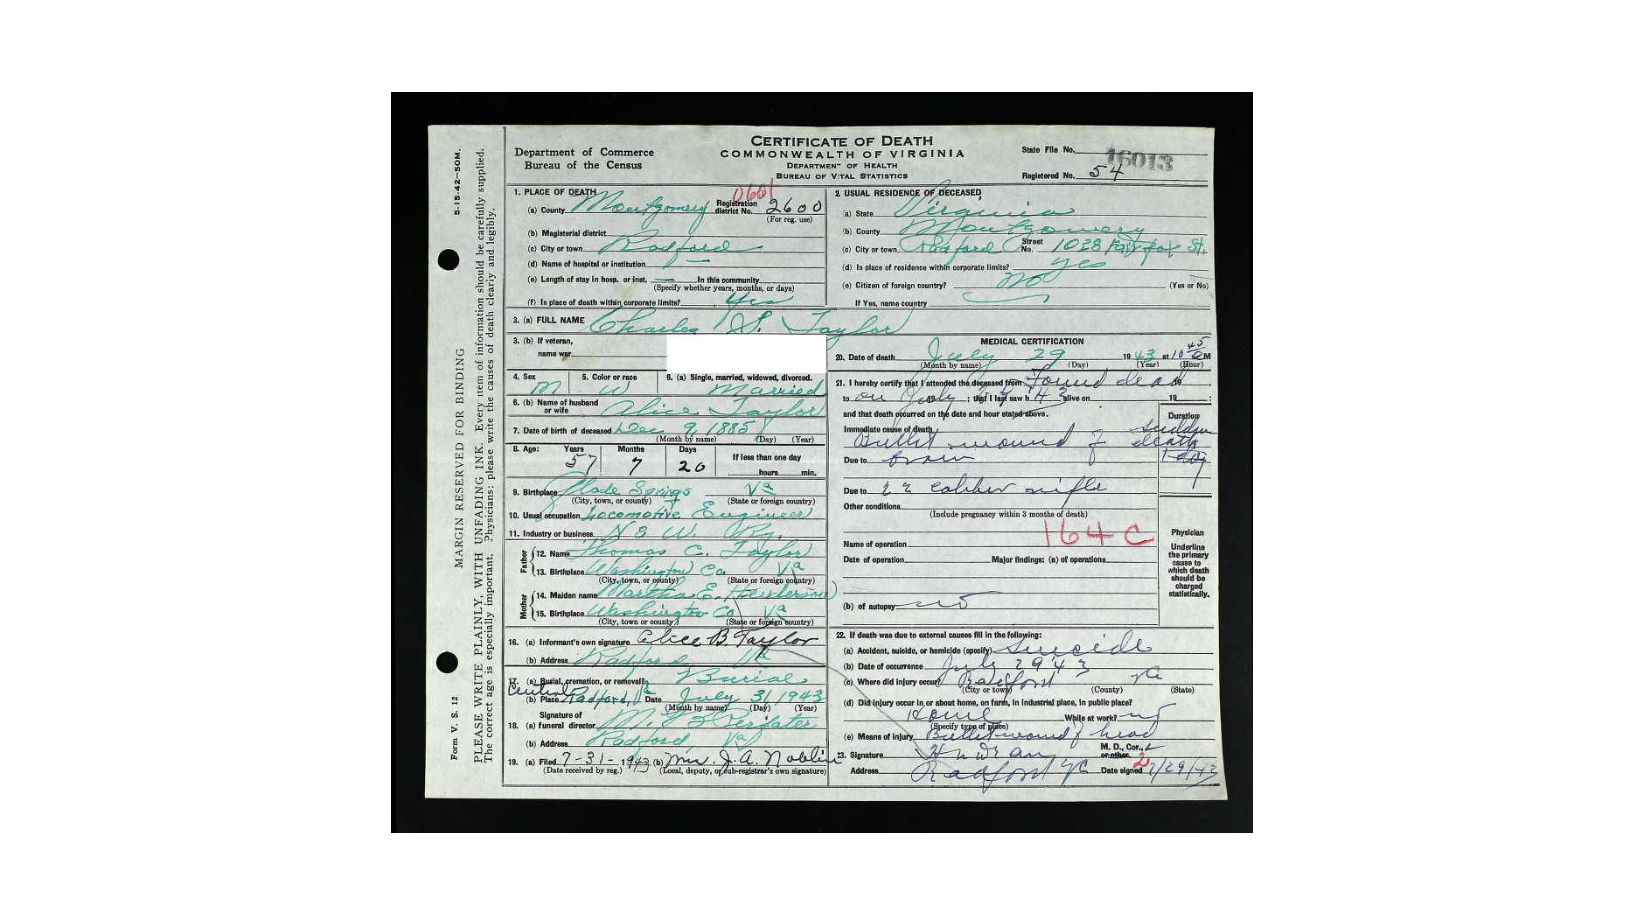 CERTIFICATE OF DEATH
COMMONWEALTH OF VIRGINIA
DEPARTMENT OF HEALTH
BUREAU OF VITAL STATISTICS
Department of Commerce
Bureau of the Census
State File No. 16013
Registered No. 54
1. PLACE OF DEATH 0601
(a) County Montgomery Registration district No. 2600
(For reg. use)
(b) Magisterial district
(c) City or town Radford
(d) Name of hospital or institution —
(e) Length of stay in hosp. or inst. — In this community
(Specify whether years, months, or days)
(f) Is place of death within corporate limits? Yes
2. USUAL RESIDENCE OF DECEASED
(a) State Virginia
(b) County Montgomery
(c) City or town Radford Street No. 1028 Fairfax St.
(d) Is place of residence within corporate limits? yes
(e) Citizen of foreign country? no (Yes or No)
If Yes, name country
3. (a) FULL NAME Charles S. Taylor
3. (b) If veteran,
name war
4. Sex M 5. Color or race W 6. (a) Single, married, widowed, divorced. Married
6. (b) Name of husband or wife Alice Taylor
7. Date of birth of deceased Dec 9, 1885
(Month by name) (Day) (Year)
8. Age: Years 57 Months 7 Days 20 If less than one day
hours min.
9. Birthplace Glade Springs Va
(City, town, or county) (State or foreign country)
10. Usual occupation Locomotive Engineer
11. Industry or business N & W. Ry.
Father
12. Name Thomas C. Taylor
13. Birthplace Washington Co. Va
(City, town, or county) (State or foreign country)
Mother
14. Maiden name Martha E. Henderson
15. Birthplace Washington Co Va
(City, town or county) (State or foreign country)
16. (a) Informant's own signature Alice B. Taylor
(b) Address Radford Va
17. (a) Burial, cremation, or removal? Burial
(b) Place Central Radford, Va Date July 31, 1943
(Month by name) (Day) (Year)
18. (a) Signature of funeral director
(b) Address Radford, Va
19. (a) Filed 7-31-1943 (b) Mrs. J. A. Noblin
(Date received by reg.) (Local, deputy, or sub-registrar's own signature)
MEDICAL CERTIFICATION
20. Date of death July 29 1943 at 10 45 a M
(Month by name) (Day) (Year) (Hour)
21. I hereby certify that I attended the deceased from Found dead 19
to on July ; that I last saw h alive on 19 ;
and that death occurred on the date and hour stated above.
Duration
Immediate cause of death sudden
Bullet wound of death
Due to brain
Due to 22 caliber rifle
Other conditions
(Include pregnancy within 3 months of death)
164 C
Name of operation
Date of operation Major findings: (a) of operations
(b) of autopsy no
Physician
Underline the primary cause to which death should be charged statistically.
22. If death was due to external causes fill in the following:
(a) Accident, suicide, or homicide (specify) Suicide
(b) Date of occurrence July 29 43
(c) Where did injury occur? Radford Va
(City or town) (County) (State)
(d) Did injury occur in or about home, on farm, in industrial place, in public place?
Home While at work? no
(Specify type of place)
(e) Means of injury Bullet wound of head
23. Signature M. D., Cor., or other
Address Radford Va Date signed 7/29/43
2
5-15-42-50M.
MARGIN RESERVED FOR BINDING
Form V. S. 12
PLEASE WRITE PLAINLY, WITH UNFADING INK. Every item of information should be carefully supplied.
The correct age is especially important. Physicians: please write the causes of death clearly and legibly.